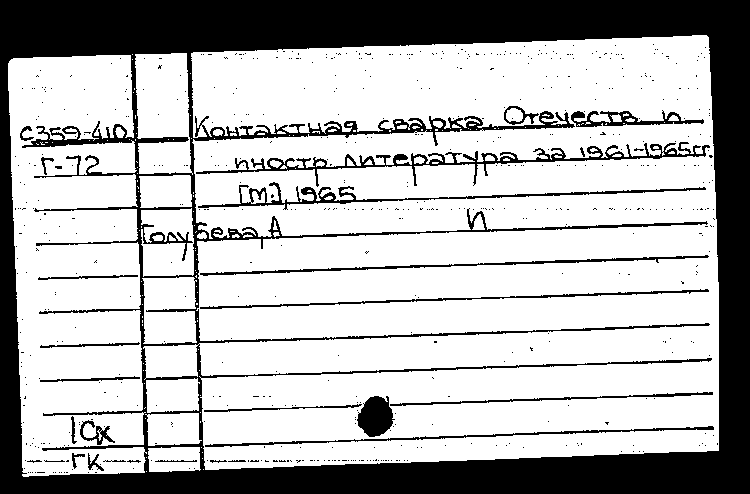 С359-410 Контактная сварка. Отечеств и
Г-72 иностр. литература за 1961-1965гг.
[М.], 1965
Голубева, А и
1Сх
ГК